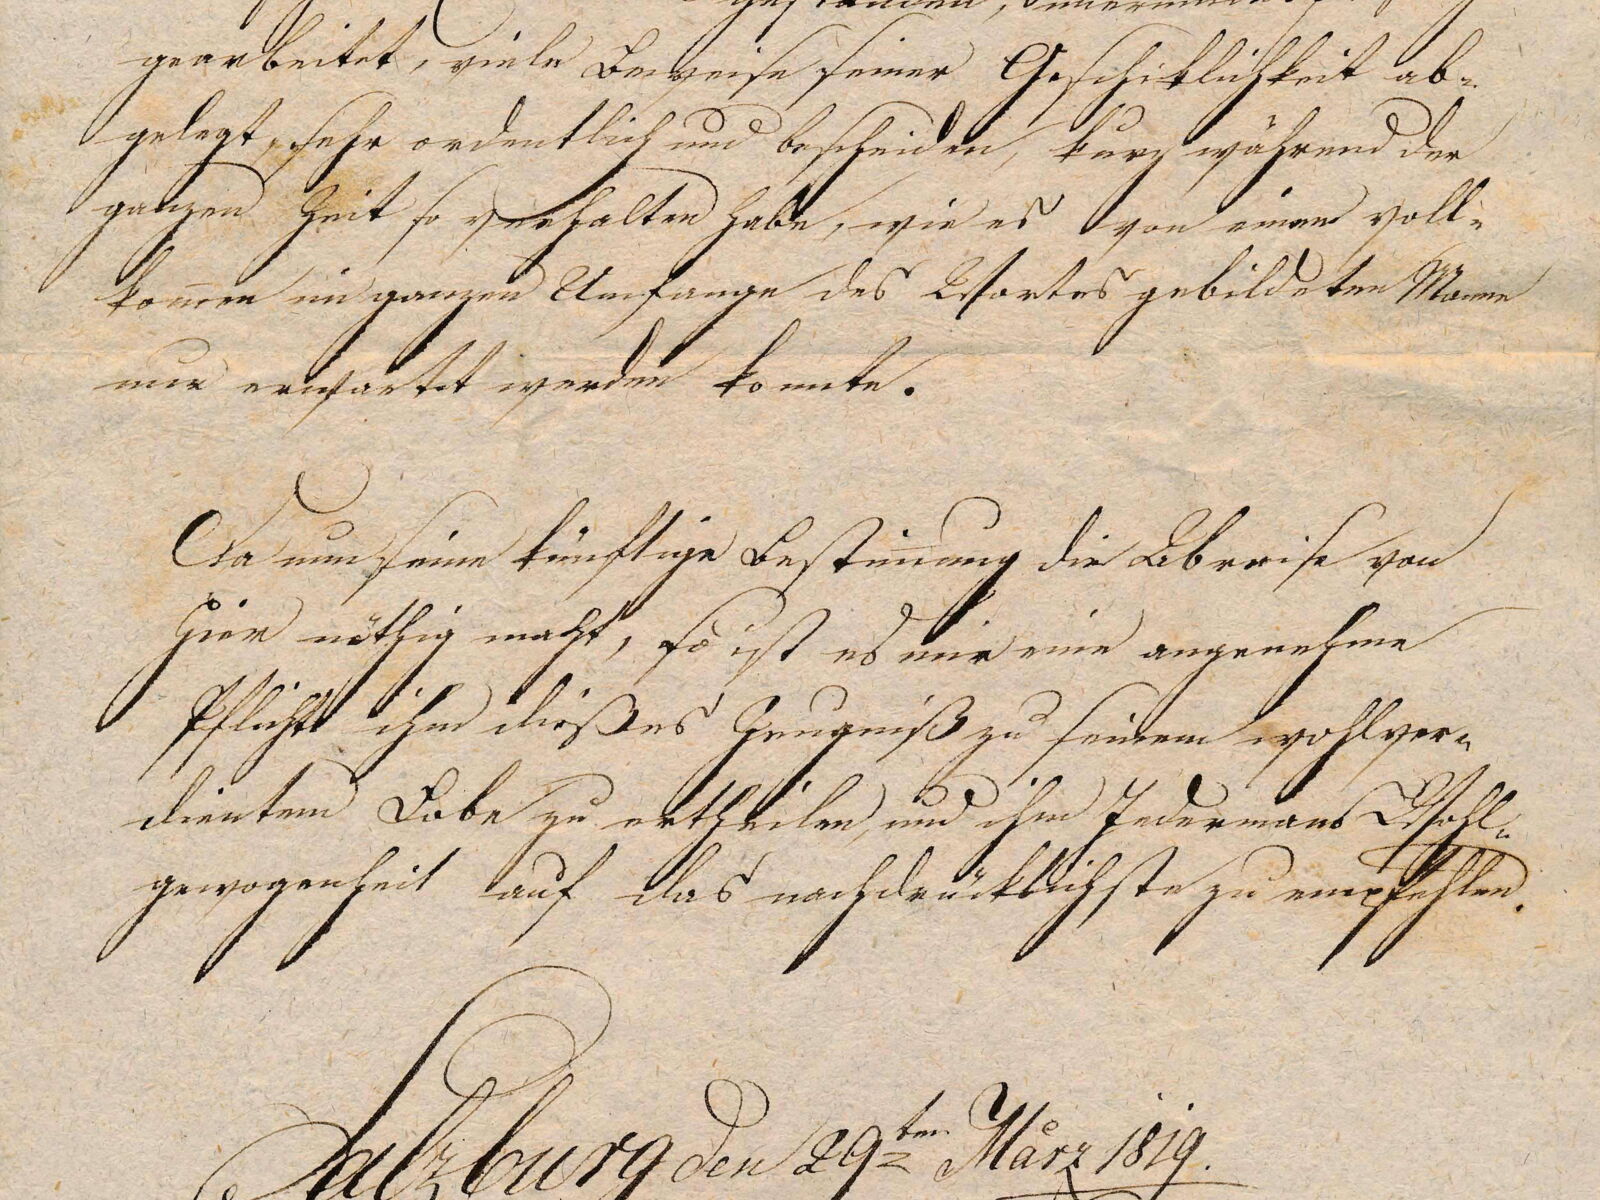 gestanden,
gearbeitet, viele Beweise seiner Geschiklichkeit ab-
gelegt, sehr ordentlich und bescheiden, kurz während der
ganzen Zeit so verhalten habe, wie es von einem voll-
kom̅en im ganzen Umfange des Wortes gebildeten Manne
nur erwartet werden konnte.
Da nun seine künftige Bestim̅ung die Abreise von
hier nöthig macht, so ist es mir eine angenehme
Pflicht ihm dießes Zeugniß zu seinem wohlver-
dientem Lobe zu ertheilen, und ihm Jedermans Wohl-
gewogenheit auf das nachdrücklichste zu empfehlen.
Salzburg den 29ten März 1819.